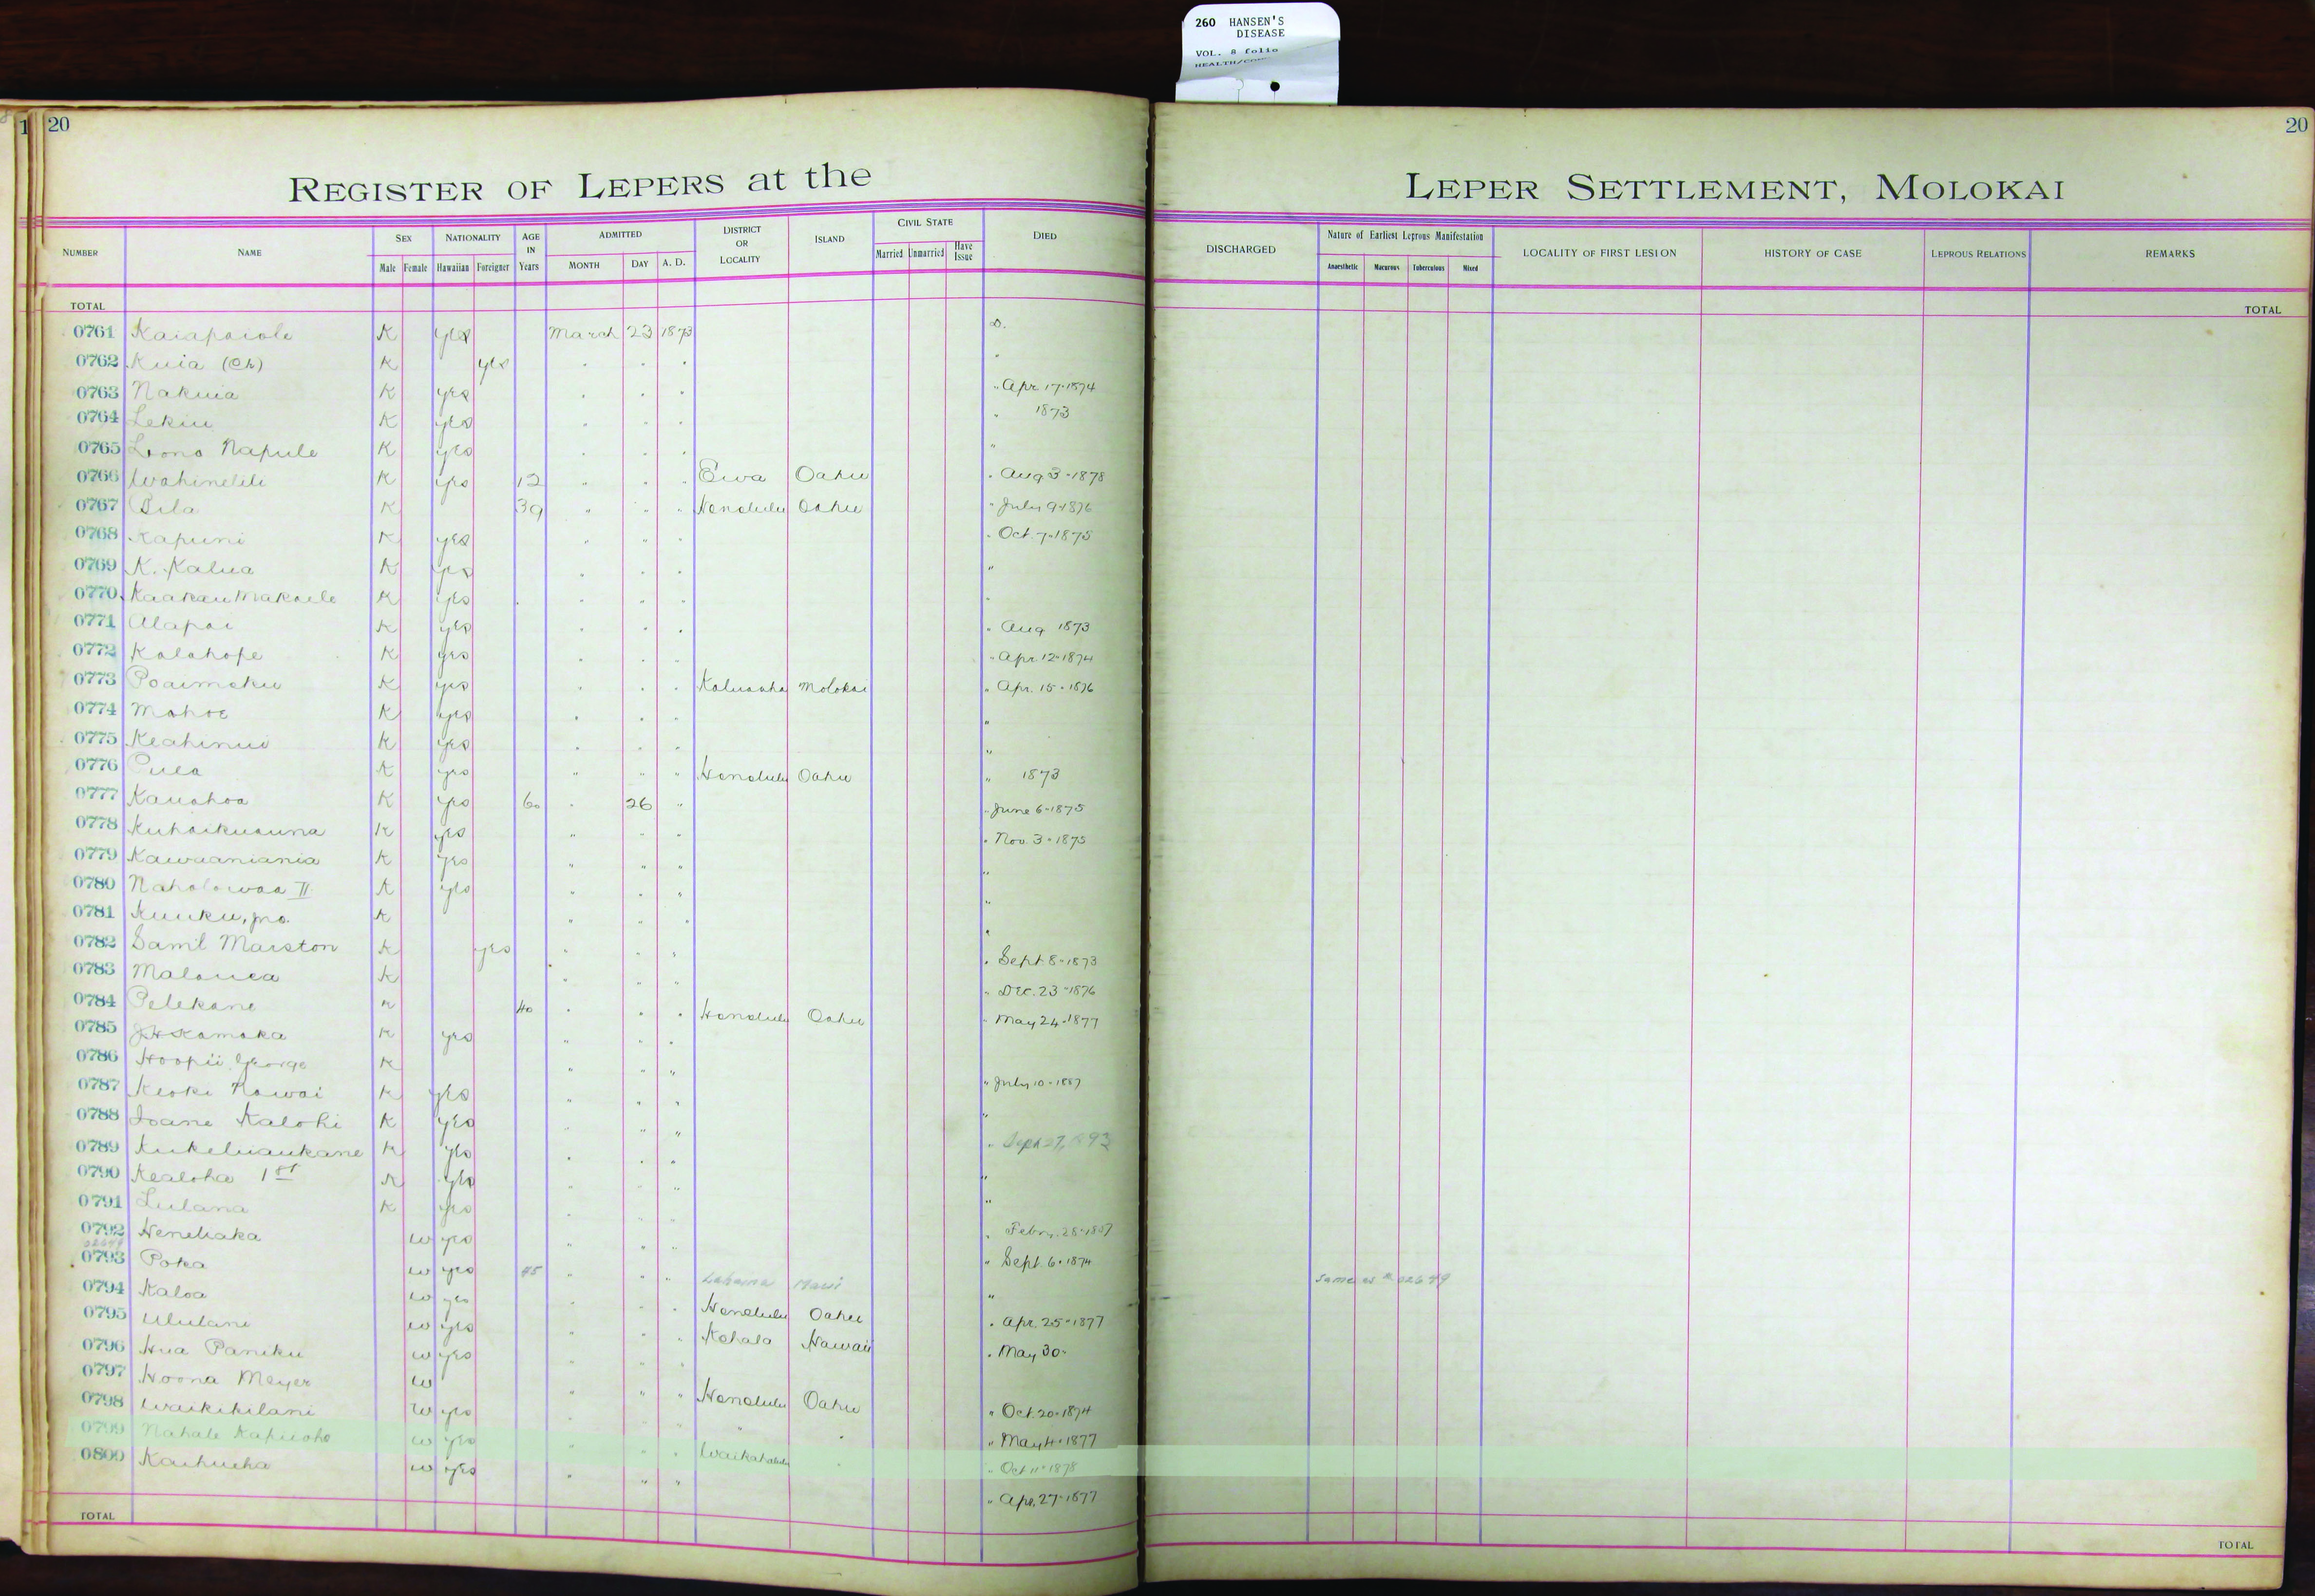 260 HANSEN'S
DISEASE
VOL. 8 folio
20
20
REGISTER OF LEPERS at the LEPER SETTLEMENT, MOLOKAI
NUMBER NAME SEX NATIONALITY AGE IN Years ADMITTED DISTRICT OR LOCALITY ISLAND CIVIL STATE DIED DISCHARGED Nature of Earliest Leprous Manifestation LOCALITY OF FIRST LESION HISTORY OF CASE LEPROUS RELATIONS REMARKS
Male Female Hawaiian Foreigner MONTH DAY A. D. Married Unmarried Have Issue Anaesthetic Macurous Tuberculous Mixed
TOTAL TOTAL
0761 Kaiapaiole K yes March 23 1873 D.
0762 Kuia (Ch) K yes . . . "
0763 Nakuia K yes . . . " Apr 17-1874
0764 Lekiu K yes . . . " 1873
0765 Lono Napule K yes . . . "
0766 Wahinelili K yes 12 " . . Ewa Oahu " Aug 3-1878
0767 Pila K 39 " " " Honolulu Oahu " July 9-1876
0768 Kapuni K yes " " . " Oct. 7-1875
0769 K. Kalua K yes . . . "
0770 Kaakau Makaele K yes . " . "
0771 Alapai K yes . . . " Aug 1873
0772 Kalahope K yes . . . " Apr. 12-1874
0773 Poaimoku K yes . . . Kaluaaha Molokai " Apr. 15-1876
0774 Mahoe K yes . . . "
0775 Keahinui K yes . . . "
0776 Pula K yes " " " Honolulu Oahu " 1873
0777 Kauahoa K yes 60 . 26 " " June 6-1875
0778 Kuhaikuauna K yes " " " " Nov. 3-1875
0779 Kawaaniania K yes " " . "
0780 Naholowaa II K yes " . " "
0781 Kuuku, jno. K " " . "
0782 Saml Marston K yes . . , " Sept 8-1873
0783 Malouea K " " . " Dec. 23-1876
0784 Pelekane K 40 . . . Honolulu Oahu " May 24-1877
0785 J.H. Kamaka K yes " " .
0786 Hoopii George K " " " " July 10-1887
0787 Keoki Kawai K yes " . " "
0788 Ioane Kalohi K yes . " " " Sept 27, 1893
0789 Kukeliaukane K yes . . " "
0790 Kealoha 1st K yes " . " "
0791 Lulana K yes . " " " Febr. 28-1887
0792 Heneliaka w yes " . " " Sept. 6-1874
02649
0793 Poka w yes 45 " . " Lahaina Maui " same as # 02649
0794 Kaloa w yes . " . Honolulu Oahu " Apr. 25-1877
0795 Ululani w yes " " . Kohala Hawaii " May 30-
0796 Hua Paniku w yes . " .
0797 Hoona Meyer w " " " Honolulu Oahu " Oct. 20-1874
0798 Waikikilani w yes . " . " " " May 4-1877
0799 Nahale Kapuoho w yes " . . Waikahalulu . " Oct 11-1878
0800 Kaihueha w yes " " " " Apr. 27-1877
TOTAL TOTAL